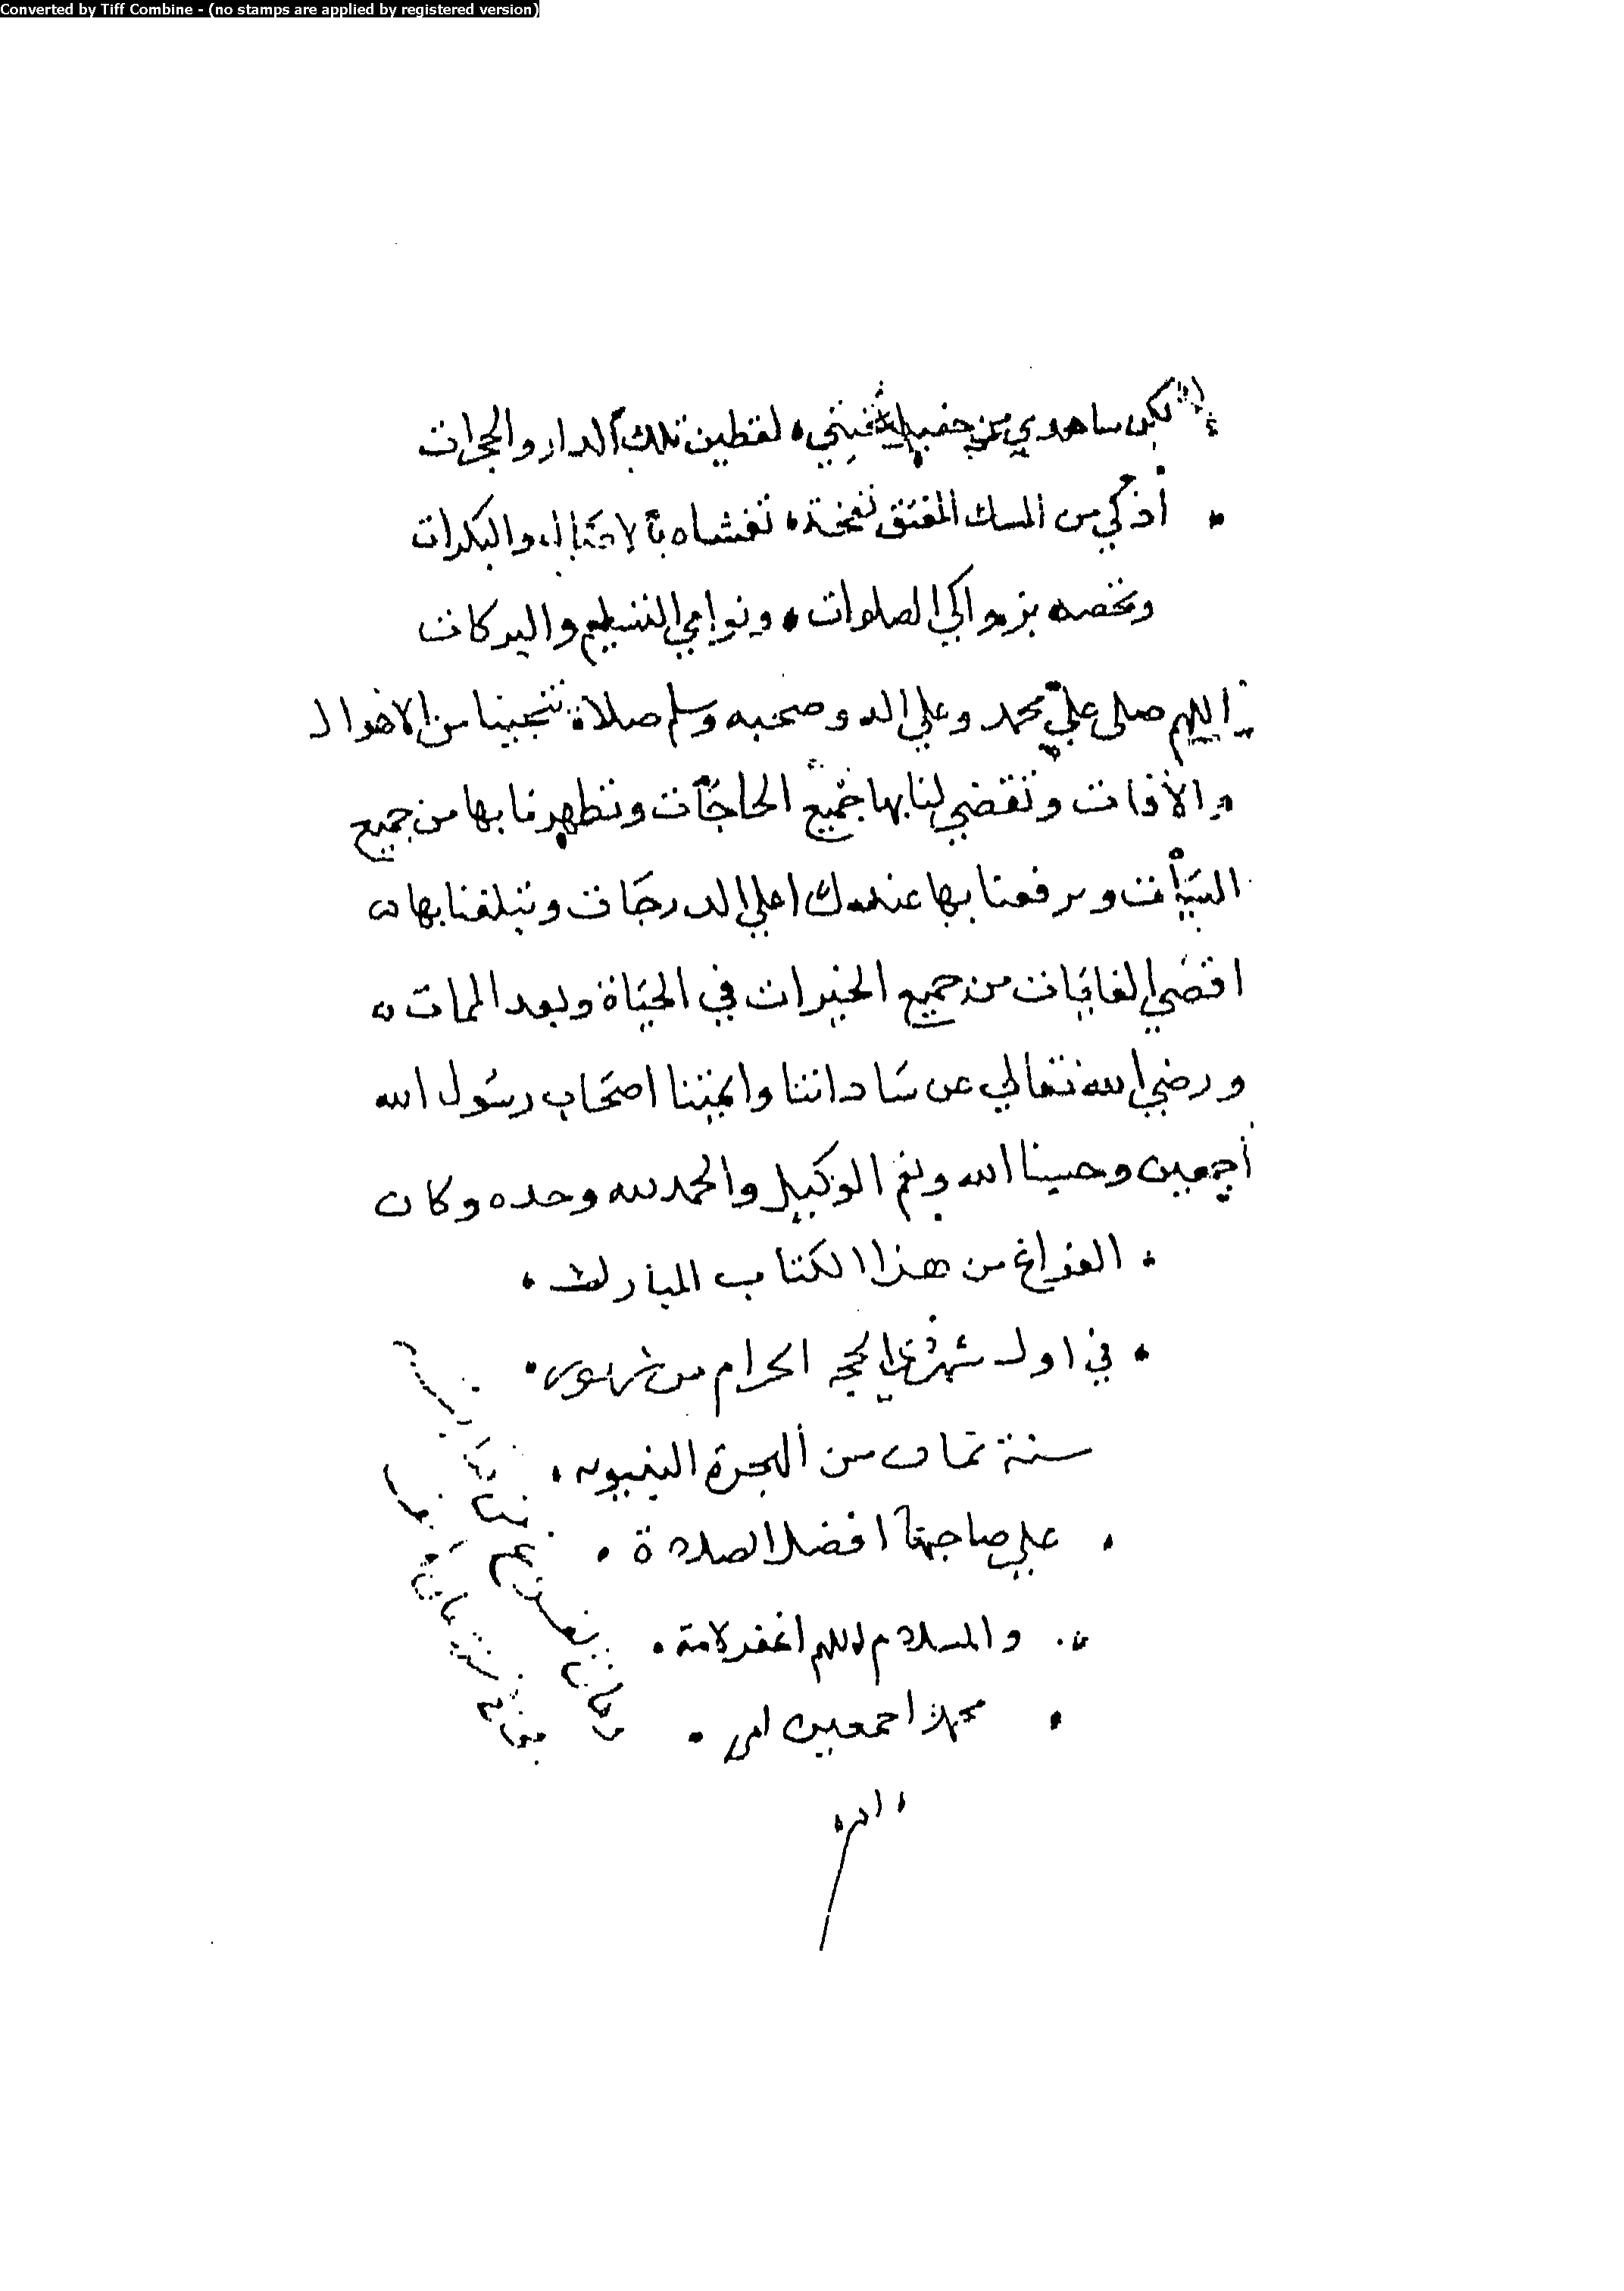 Converted by Tiff Combine - (no stamps are applied by registered version)
لكن ساهدي من حفيل تحيتي، لقطين تلك الدار والحجرات
أذكي من المسك المفتق نفحة، تغشاه بالاصال والبكرات
وتخصه بزواكي الصلوات، ونوامي التسليم والبركات
اللهم صلى على محمد وعلي اله وصحبه وسلم صلاة تنجينا من الاهوال
والافات وتقضي لنا بها جميع الحاجات وتطهرنا بها من جميع
السيأت وترفعنا بها عندك اعلي الدرجات وتبلغنا بها
اقصي الغايات من جميع الخيرات في الحياة وبعد الممات
ورضي الله تعالي عن ساداتنا وايمتنا اصحاب رسول الله
أجمعين وحسبنا الله ونعم الوكيل والحمد لله وحده وكان
الفراغ من هذا الكتاب المبارك
في اول شهر ذي الحجه الحرام من شهور
سنة ثمان من الهجرة النبويه
علي صاحبها افضل الصلاة
والسلام اللهم اغفر لامة
محمد اجمعين امين